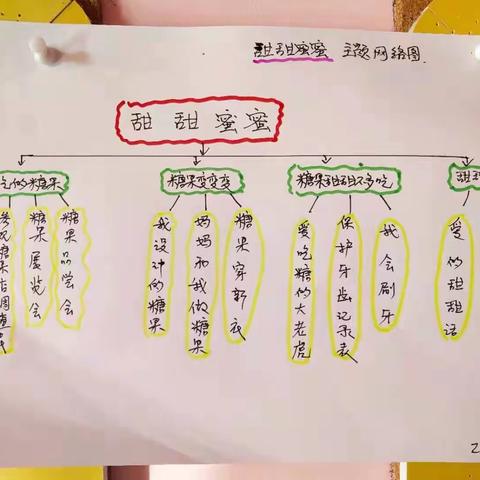 甜甜蜜蜜 主题网络图
甜甜蜜蜜
吃的糖果
糖果变变变
糖果甜甜不多吃
甜甜
参观糖果店调查表
糖果展览会
糖果品尝会
我设计的糖果
妈妈和我做糖果
糖果穿新衣
爱吃糖的大老虎
保护牙齿记录表
我会刷牙
爱的甜甜话
2